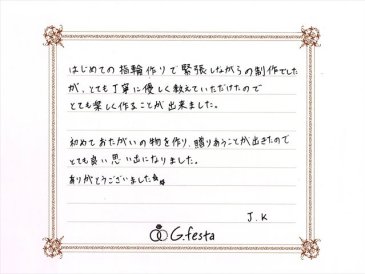 はじめての指輪作りで緊張しながらの制作でした
が、とても丁寧に優しく教えていただけたので
とても楽しく作ることが出来ました。
初めておたがいの物を作り、贈りあうことが出きたので
とても良い思い出になりました。
ありがとうございました
J.K
G.festa